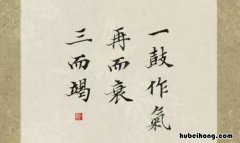 一鼓作氣
再而衰
三而竭
hubeihong.com